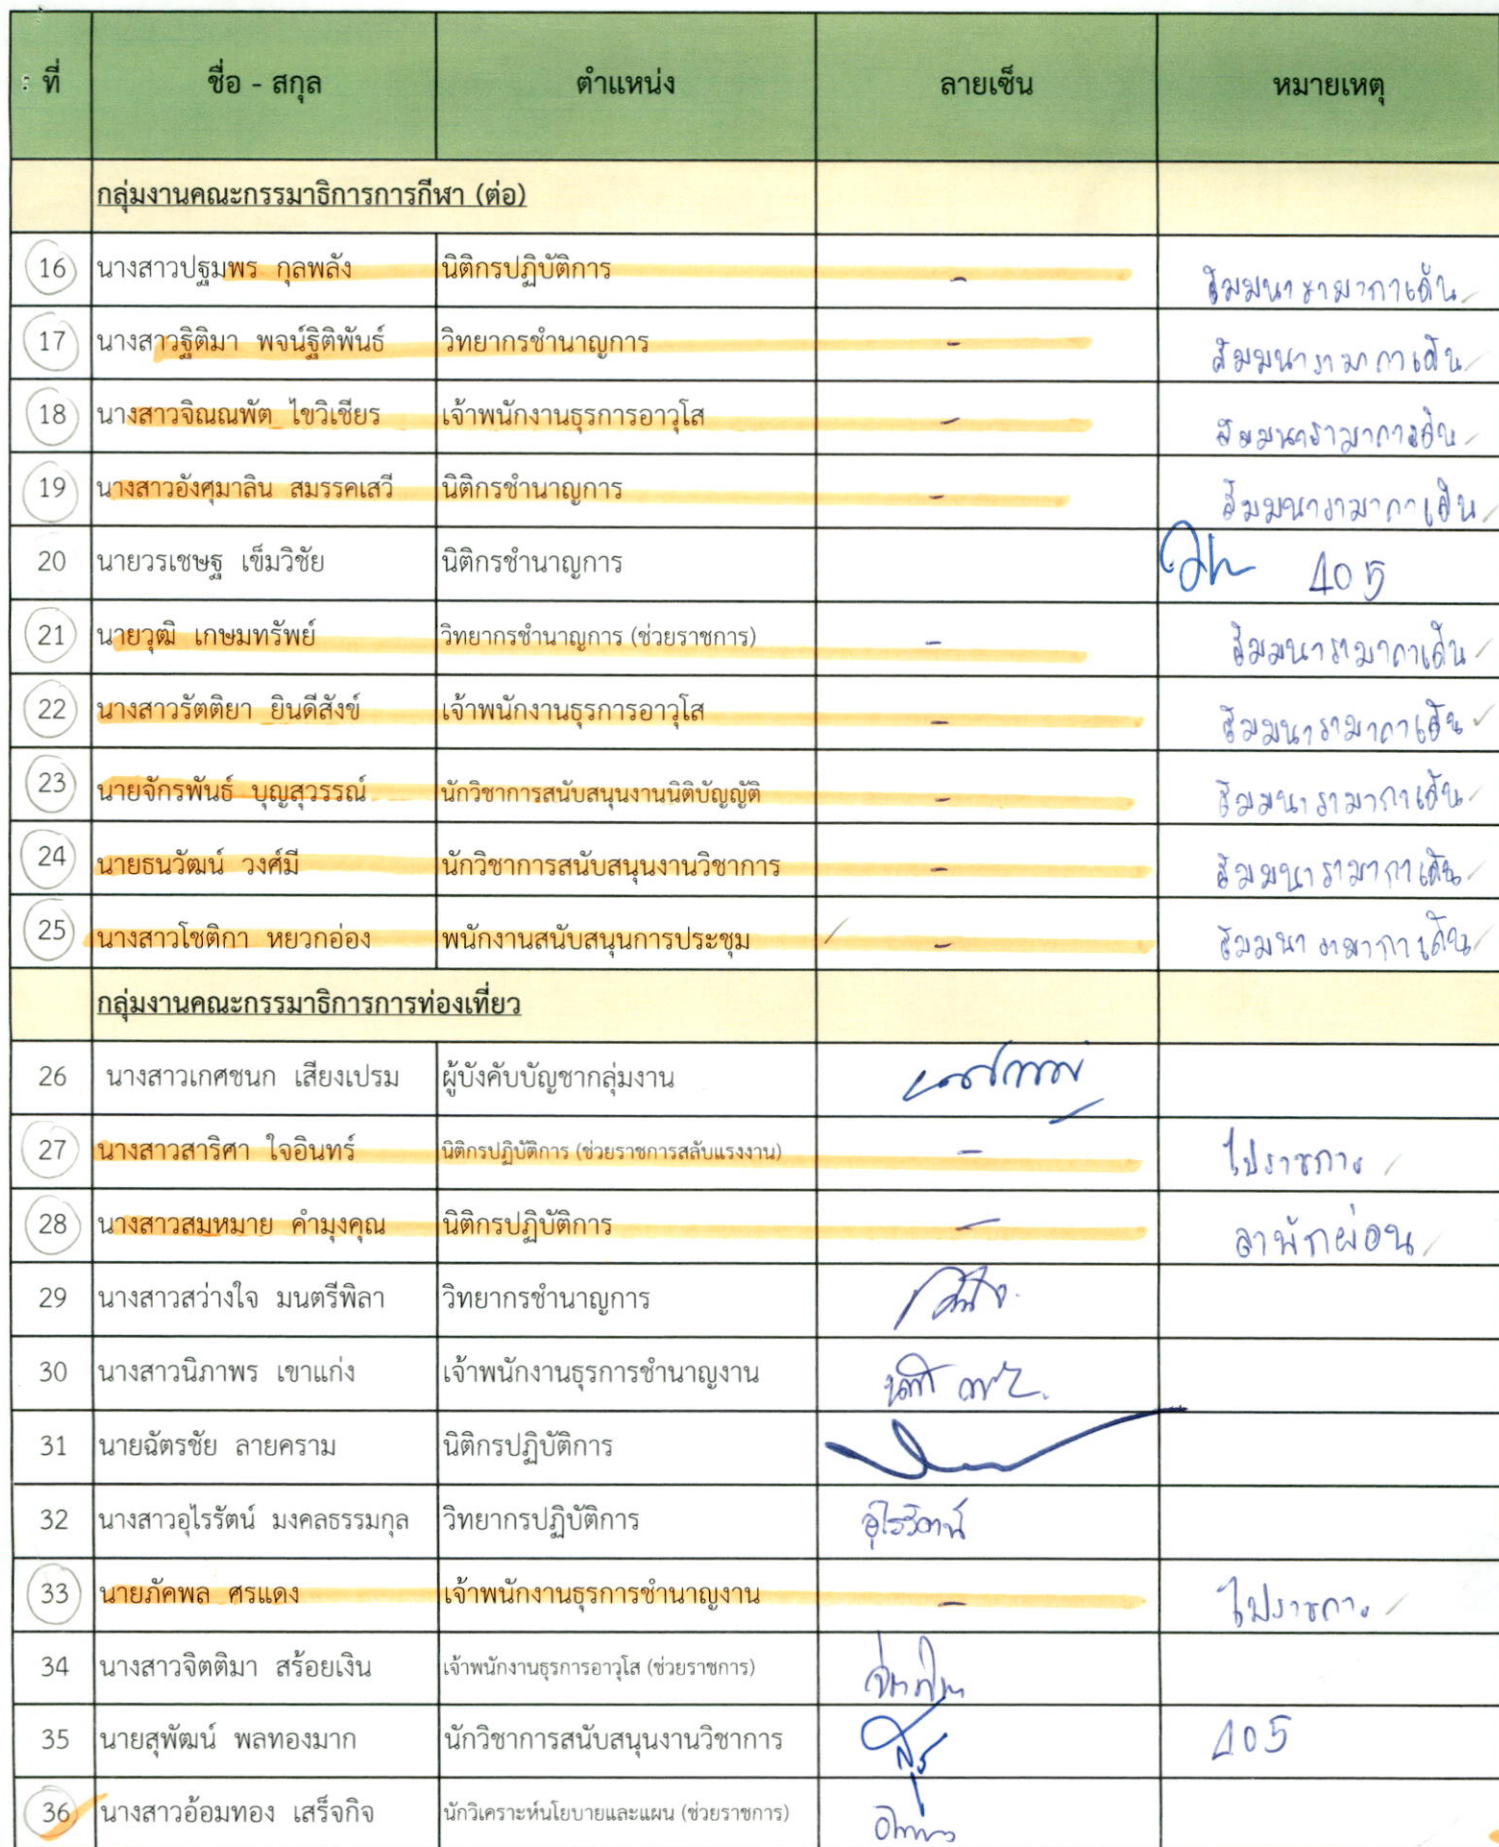 ที่ ชื่อ - สกุล ตำแหน่ง ลายเซ็น หมายเหตุ
กลุ่มงานคณะกรรมาธิการการกีฬา (ต่อ)
16 นางสาวปฐมพร กุลพลัง นิติกรปฏิบัติการ - สัมมนารามาการ์เด้น
17 นางสาวฐิติมา พจน์ฐิติพันธ์ วิทยากรชำนาญการ - สัมมนารามาการ์เด้น
18 นางสาวจิณณพัต ไขวิเชียร เจ้าพนักงานธุรการอาวุโส - สัมมนารามาการ์เด้น
19 นางสาวอังศุมาลิน สมรรคเสวี นิติกรชำนาญการ - สัมมนารามาการ์เด้น
20 นายวรเชษฐ เข็มวิชัย นิติกรชำนาญการ 405
21 นายวุฒิ เกษมทรัพย์ วิทยากรชำนาญการ (ช่วยราชการ) - สัมมนารามาการ์เด้น
22 นางสาวรัตติยา ยินดีสังข์ เจ้าพนักงานธุรการอาวุโส - สัมมนารามาการ์เด้น
23 นายจักรพันธ์ บุญสุวรรณ์ นักวิชาการสนับสนุนงานนิติบัญญัติ - สัมมนารามาการ์เด้น
24 นายธนวัฒน์ วงศ์มี นักวิชาการสนับสนุนงานวิชาการ - สัมมนารามาการ์เด้น
25 นางสาวโชติกา หยวกอ่อง พนักงานสนับสนุนการประชุม - สัมมนารามาการ์เด้น
กลุ่มงานคณะกรรมาธิการการท่องเที่ยว
26 นางสาวเกศชนก เสียงเปรม ผู้บังคับบัญชากลุ่มงาน
27 นางสาวสาริศา ใจอินทร์ นิติกรปฏิบัติการ (ช่วยราชการสลับแรงงาน) - ไปราชการ
28 นางสาวสมหมาย คำมุงคุณ นิติกรปฏิบัติการ - ลาพักผ่อน
29 นางสาวสว่างใจ มนตรีพิลา วิทยากรชำนาญการ
30 นางสาวนิภาพร เขาแก่ง เจ้าพนักงานธุรการชำนาญงาน
31 นายฉัตรชัย ลายคราม นิติกรปฏิบัติการ
32 นางสาวอุไรรัตน์ มงคลธรรมกุล วิทยากรปฏิบัติการ อุไรรัตน์
33 นายภัคพล ศรแดง เจ้าพนักงานธุรการชำนาญงาน - ไปราชการ
34 นางสาวจิตติมา สร้อยเงิน เจ้าพนักงานธุรการอาวุโส (ช่วยราชการ)
35 นายสุพัฒน์ พลทองมาก นักวิชาการสนับสนุนงานวิชาการ 405
36 นางสาวอ้อมทอง เสร็จกิจ นักวิเคราะห์นโยบายและแผน (ช่วยราชการ)